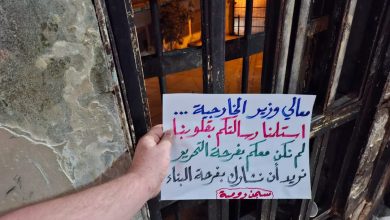 معالي وزير الخارجية ...
استلمنا رسالتكم بقلوبنا
لم نكن معكم بفرحة التحرير
نريد أن نشارك بفرحة البناء
سجن رومية